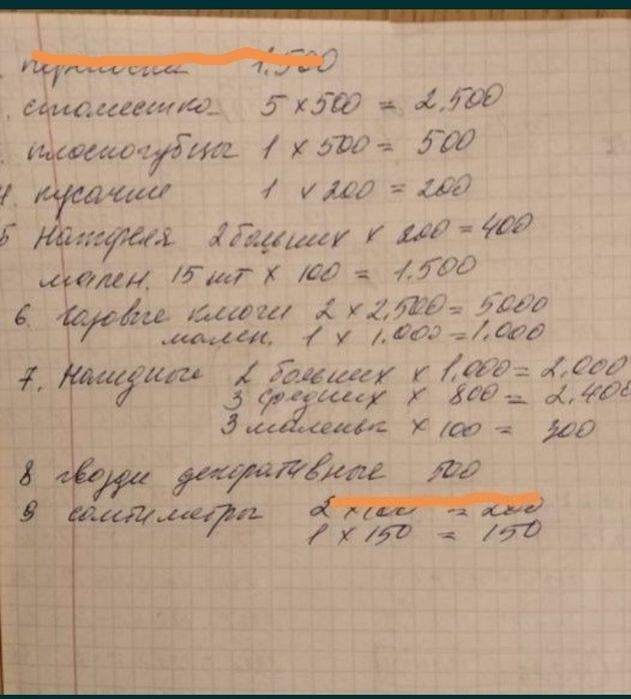 1.500
стаместка 5 x 500 = 2.500
плоскогубцы 1 x 500 = 500
4. кусачие 1 x 200 = 200
5 Напфеля 2 больших x 200 = 400
мален. 15 шт x 100 = 1.500
6. газовые ключи 2 x 2.500 = 5000
мален. 1 x 1.000 = 1.000
7. Накидные 2 больших x 1.000 = 2.000
3 средних x 800 = 2.400
3 маленьк x 100 = 300
8 гвозди декоративные 500
9 сантиметры 2 x 100 = 200
1 x 150 = 150